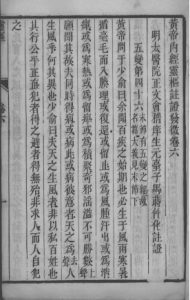 黃帝內經靈樞註證發微卷六
明太醫院正文會稽庠生元臺子馬蒔仲化註證
五變第四十六
黃帝問于少俞曰余聞百疾之始期也必生于風雨寒暑
循毫毛而入腠理或復還或留止或為風腫汗出或為消
癉或為寒熱或為留痹或為積聚奇邪淫溢不可勝數
願聞其故夫同時得病或病此或病彼意者天之為人
生風乎何其異也少俞曰夫天之生風者非以私百姓也
其行公平正直犯者得之避者得無殆非求人而人自犯
之